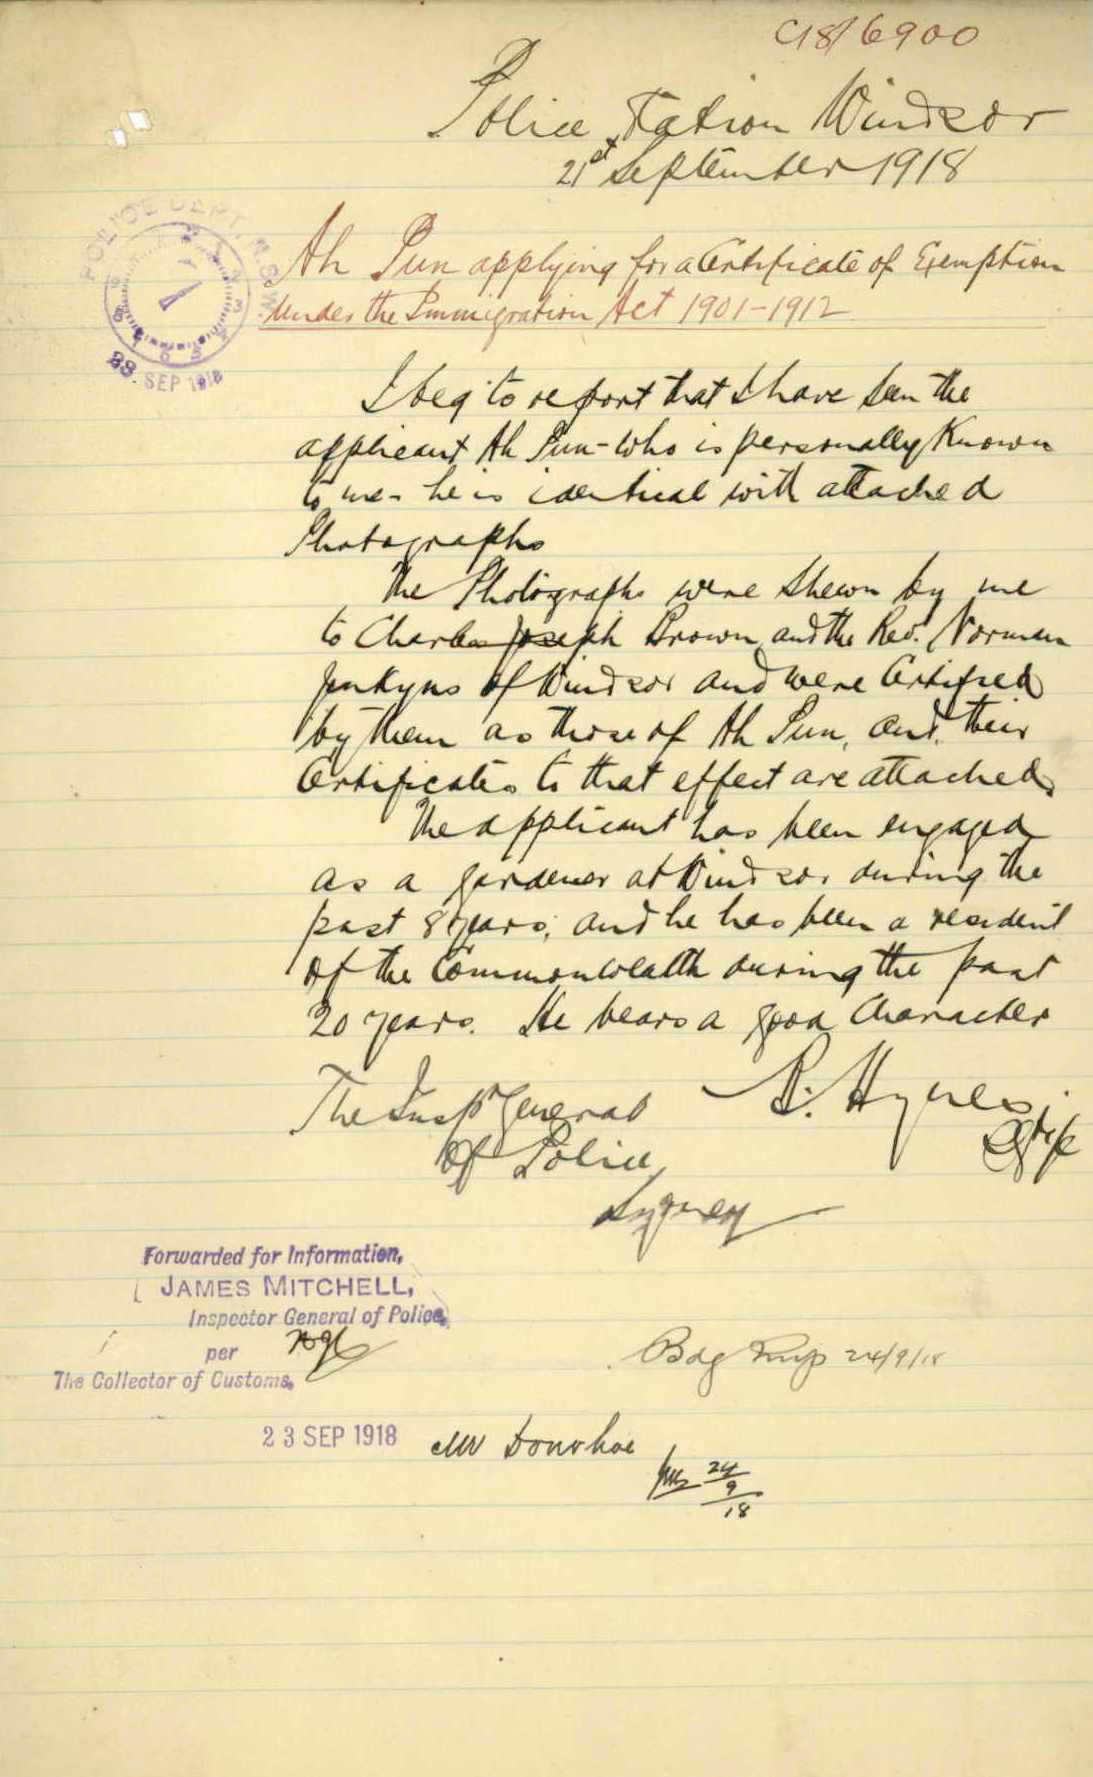 C18/6900
Police Station Windsor
21st September 1918
POLICE DEPT. N.S.W.
23 SEP 1918
Ah Pun applying for a Certificate of Exemption
Under the Immigration Act 1901-1912
I beg to report that I have seen the
applicant Ah Pun - who is personally Known
to me - he is identical with attached
Photographs
The Photographs were shewn by me
to Charles Joseph Brown and the Rev. Norman
Jenkyns of Windsor and were Certified
by them as those of Ah Pun, and their
Certificates to that effect are attached.
The applicant has been engaged
as a gardener at Windsor during the
past 8 years, and he has been a resident
of the Commonwealth during the past
20 years. He bears a good Character
The Inspr General
Of Police
Sydney
Hynes
Forwarded for Information,
JAMES MITCHELL,
Inspector General of Police,
per
The Collector of Customs.
24/9/18
23 SEP 1918
Mr Donohoe
24
9
18